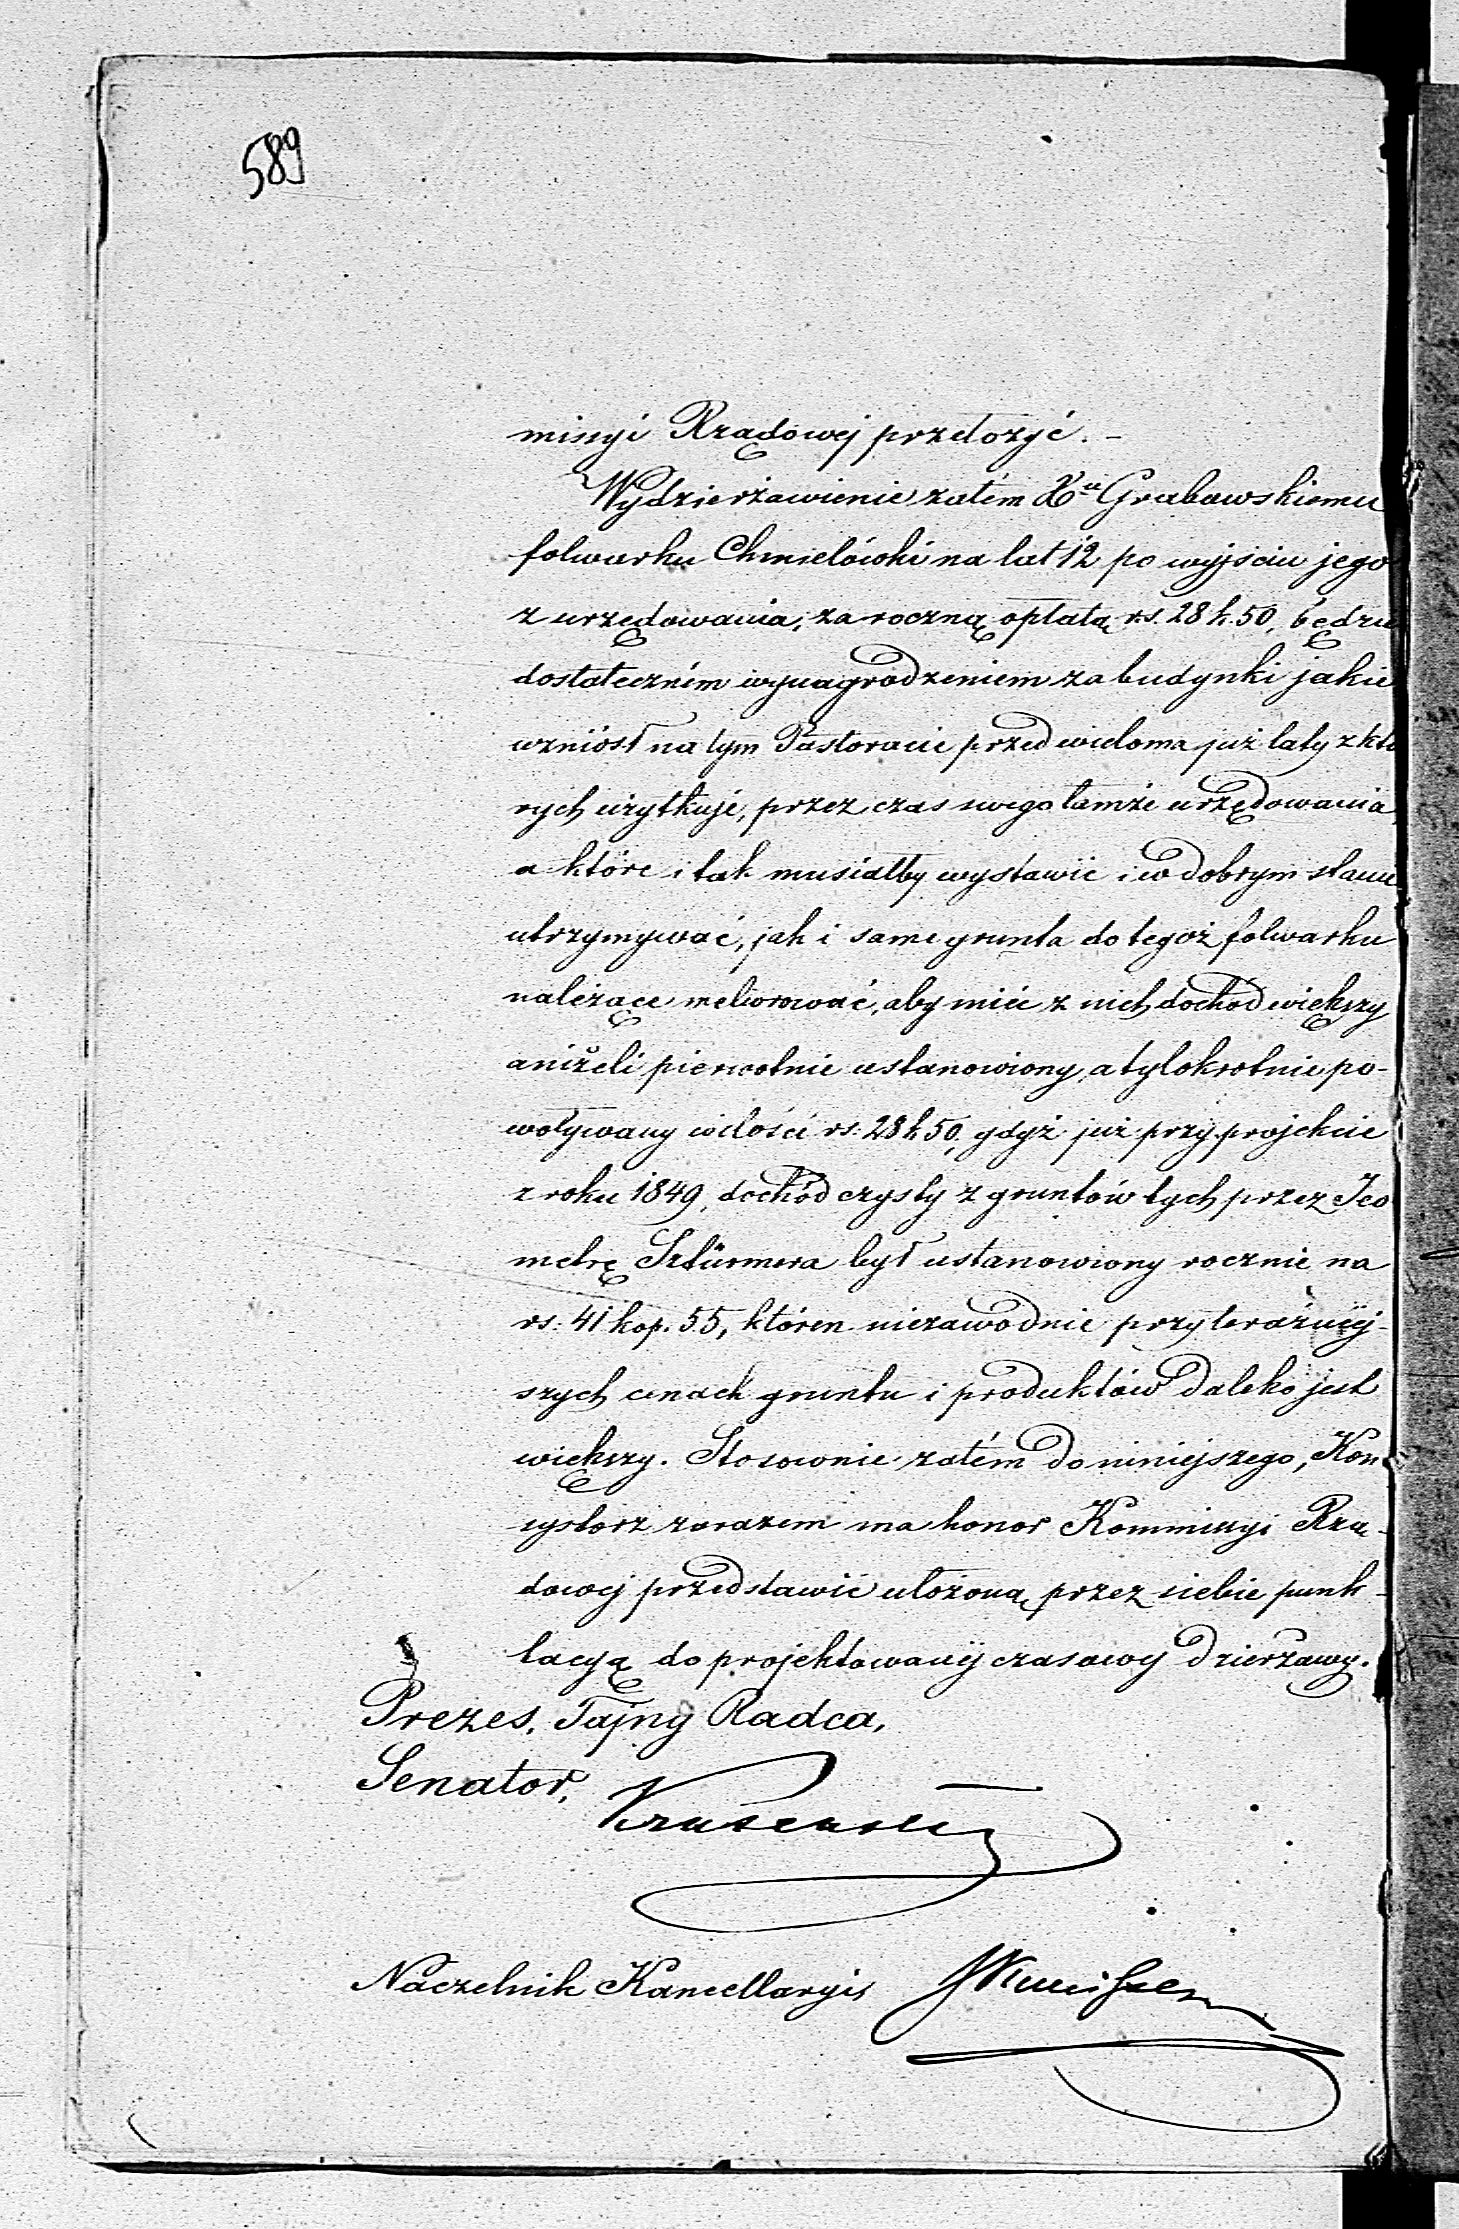 589
missyi Rządowej przełożyć. -
Wydzierżawienie zatém Xu Grabowskiemu
folwarku Chmielówki na lat 12 po wyjściu jego
z urzędowania, za roczną opłatą rs. 28 k. 50, będzie
dostateczném wynagrodzeniem za budynki jakie
wzniósł na tym Pastoracie przed wieloma już laty z któ
rych użytkuje, przez czas swego tamże urzędowania,
a które i tak musiałby wystawić i w dobrym stanie
utrzymywać, jak i same grunta do tegoż folwarku
należące meliorować, aby mieć z nich dochód większy
aniżeli pierwotnie ustanowiony, a tylokrotnie po-
woływany w ilości rs. 28 k 50, gdyż już przy projekcie
z roku 1849, dochód czysty z gruntów tych przez Jeo
metrę Sztürmera był ustanowiony rocznie na
rs. 41 kop. 55, któren niezawodnie przy teraźniej-
szych cenach gruntu i produktów daleko jest
większy. Stosownie zatém do niniejszego, Kon-
systorz zarazem ma honor Kommissyi Rzą-
dowej przedstawić ułożoną przez siebie punk-
tacyą do projektowanéj czasowej dzierżawy.
Prezes, Tajny Radca,
Senator,
Naczelnik Kancellaryi,